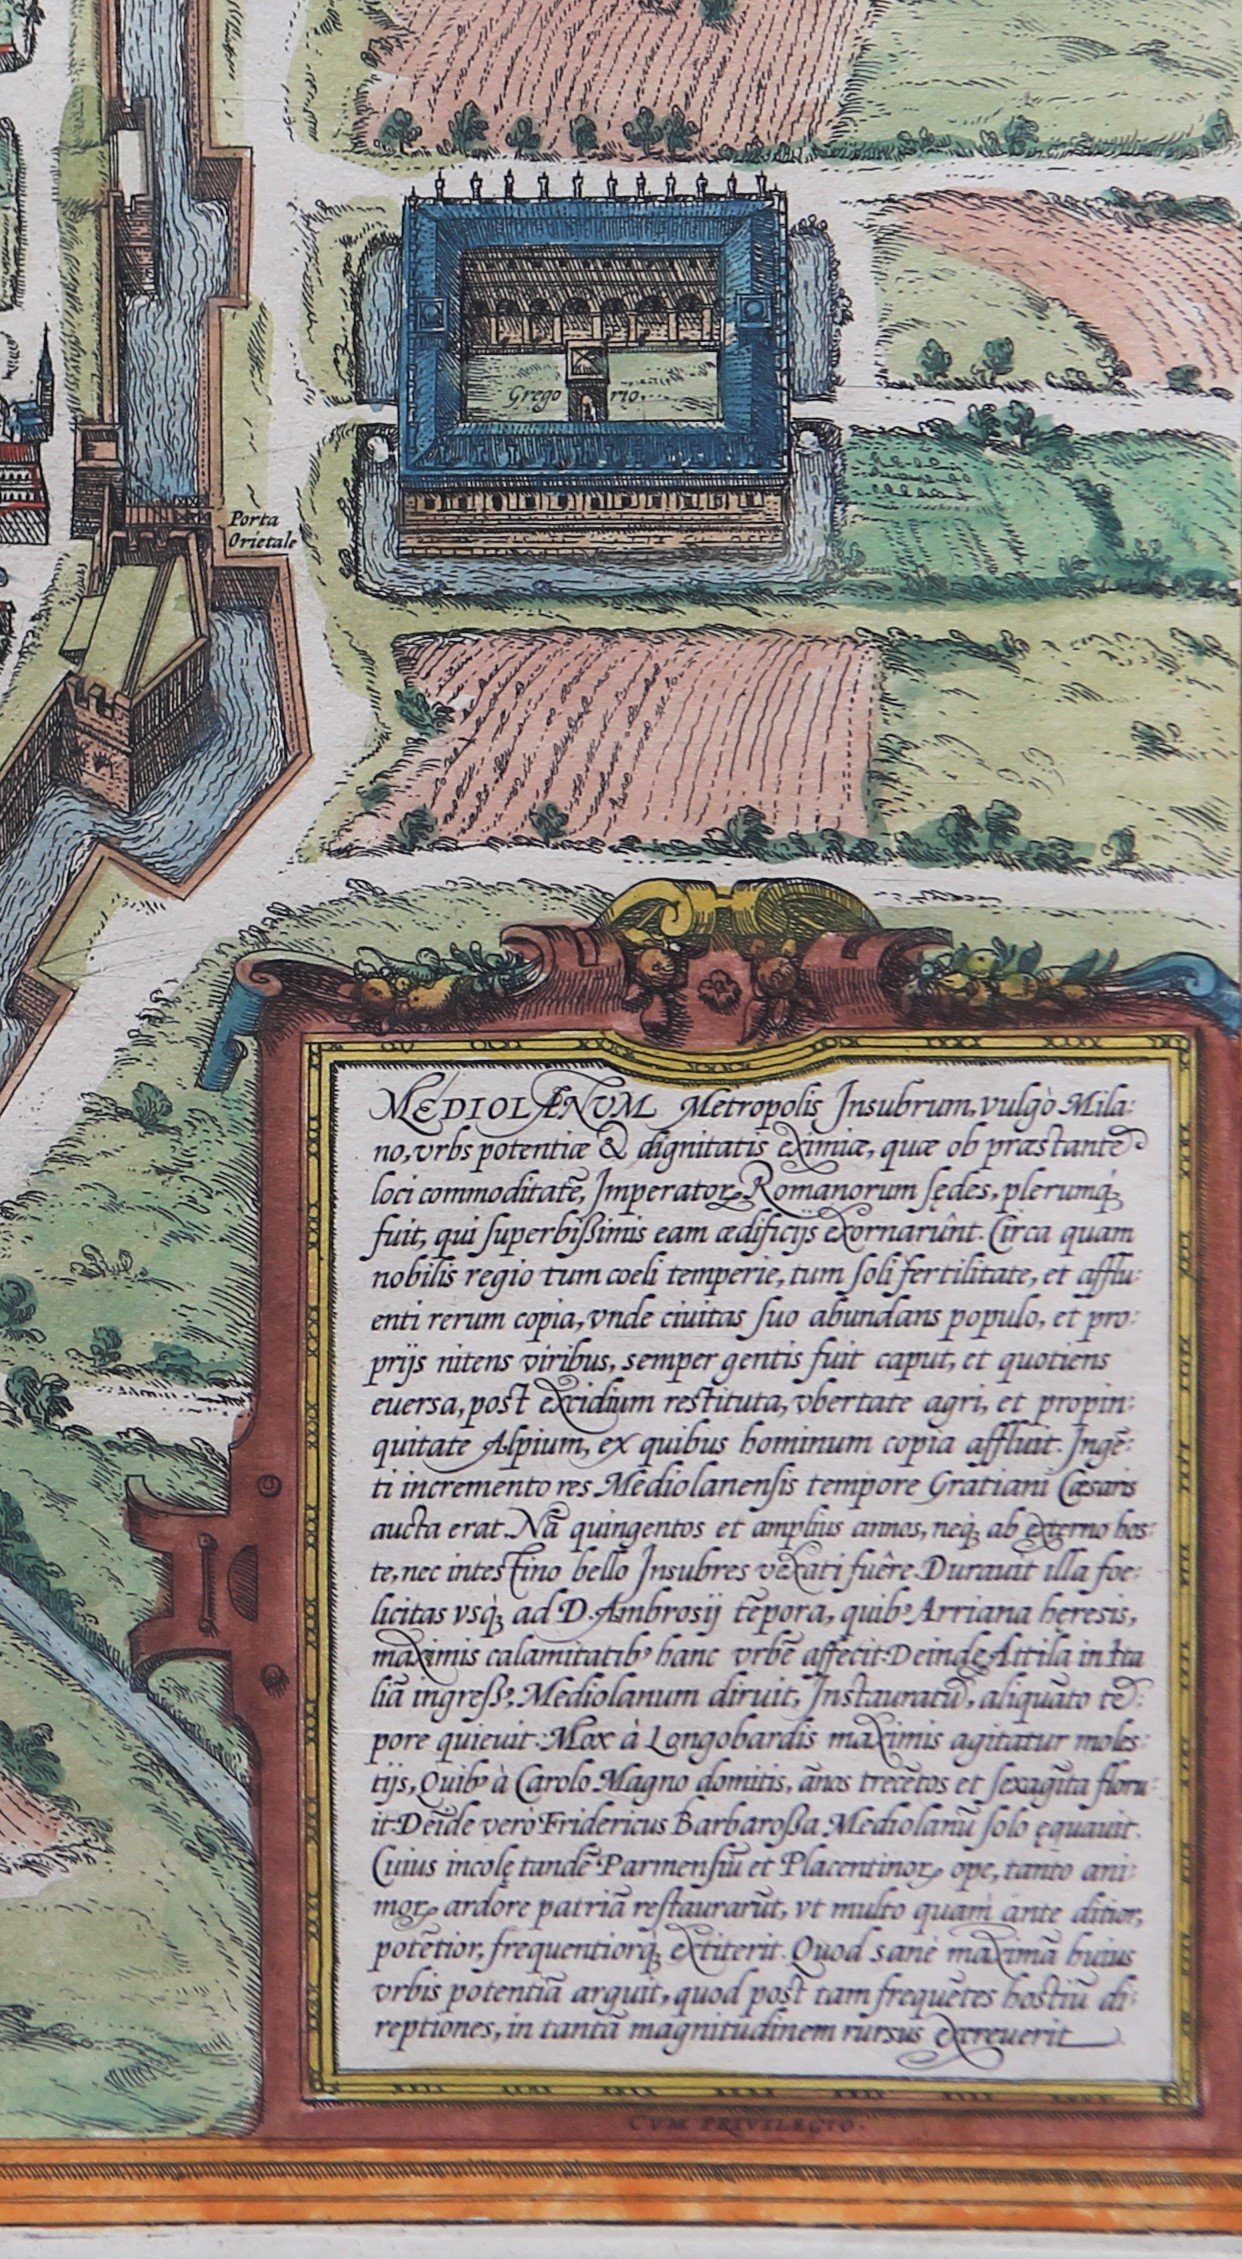 Grego rio.
Porta
Orietale
MEDIOLÆNVM Metropolis Insubrum, vulgò Mila:
no, vrbs potentiæ & dignitatis eximiæ, quæ ob præstante
loci commoditatē, Imperatorꝝ Romanorum sędes, plerumq́ꝫ
fuit, qui superbißimis eam ædificijs exornarûnt. Circa quam
nobilis regio tum coeli temperie, tum soli fertilitate, et afflu:
enti rerum copia, vnde ciuitas suo abundans populo, et pro:
prijs nitens viribus, semper gentis fuit caput, et quotiens
euersa, post excidium restituta, vbertate agri, et propin:
quitate Alpium, ex quibus hominum copia affluit. Ingē:
ti incremento res Mediolanensis tempore Gratiani Cæsaris
aucta erat. Nā quingentos et amplius annos, neq́ꝫ ab externo hos:
te, nec intestino bello Insubres vexati fuêre. Durauit illa foe:
licitas vsq́ꝫ ad D. Ambrosij tēpora, quibꝰ Arriana hęresis,
maximis calamitatibꝰ hanc vrbē affecit. Deinde Attila in Ita
liā ingreßꝰ, Mediolanum diruit, Instauratū, aliquāto tē:
pore quieuit. Mox à Longobardis maximis agitatur moles:
tijs, Quibꝰ à Carolo Magno domitis, ānos trecētos et sexagīta floru:
it. Deīde verò Fridericus Barbaroßa Mediolanū solo ęquauit.
Cuius incolę tandē Parmensiū et Placentinorꝝ ope, tanto ani:
morꝝ ardore patriā restaurarūt, vt multo quam ante ditior,
potētior, frequentiorq́ꝫ extiterit. Quod sanè maximā huius
vrbis potentiā arguit, quod post tam frequētes hostiū di:
reptiones, in tantā magnitudinem rursus excreuerit
CVM PRIVILEGIO.